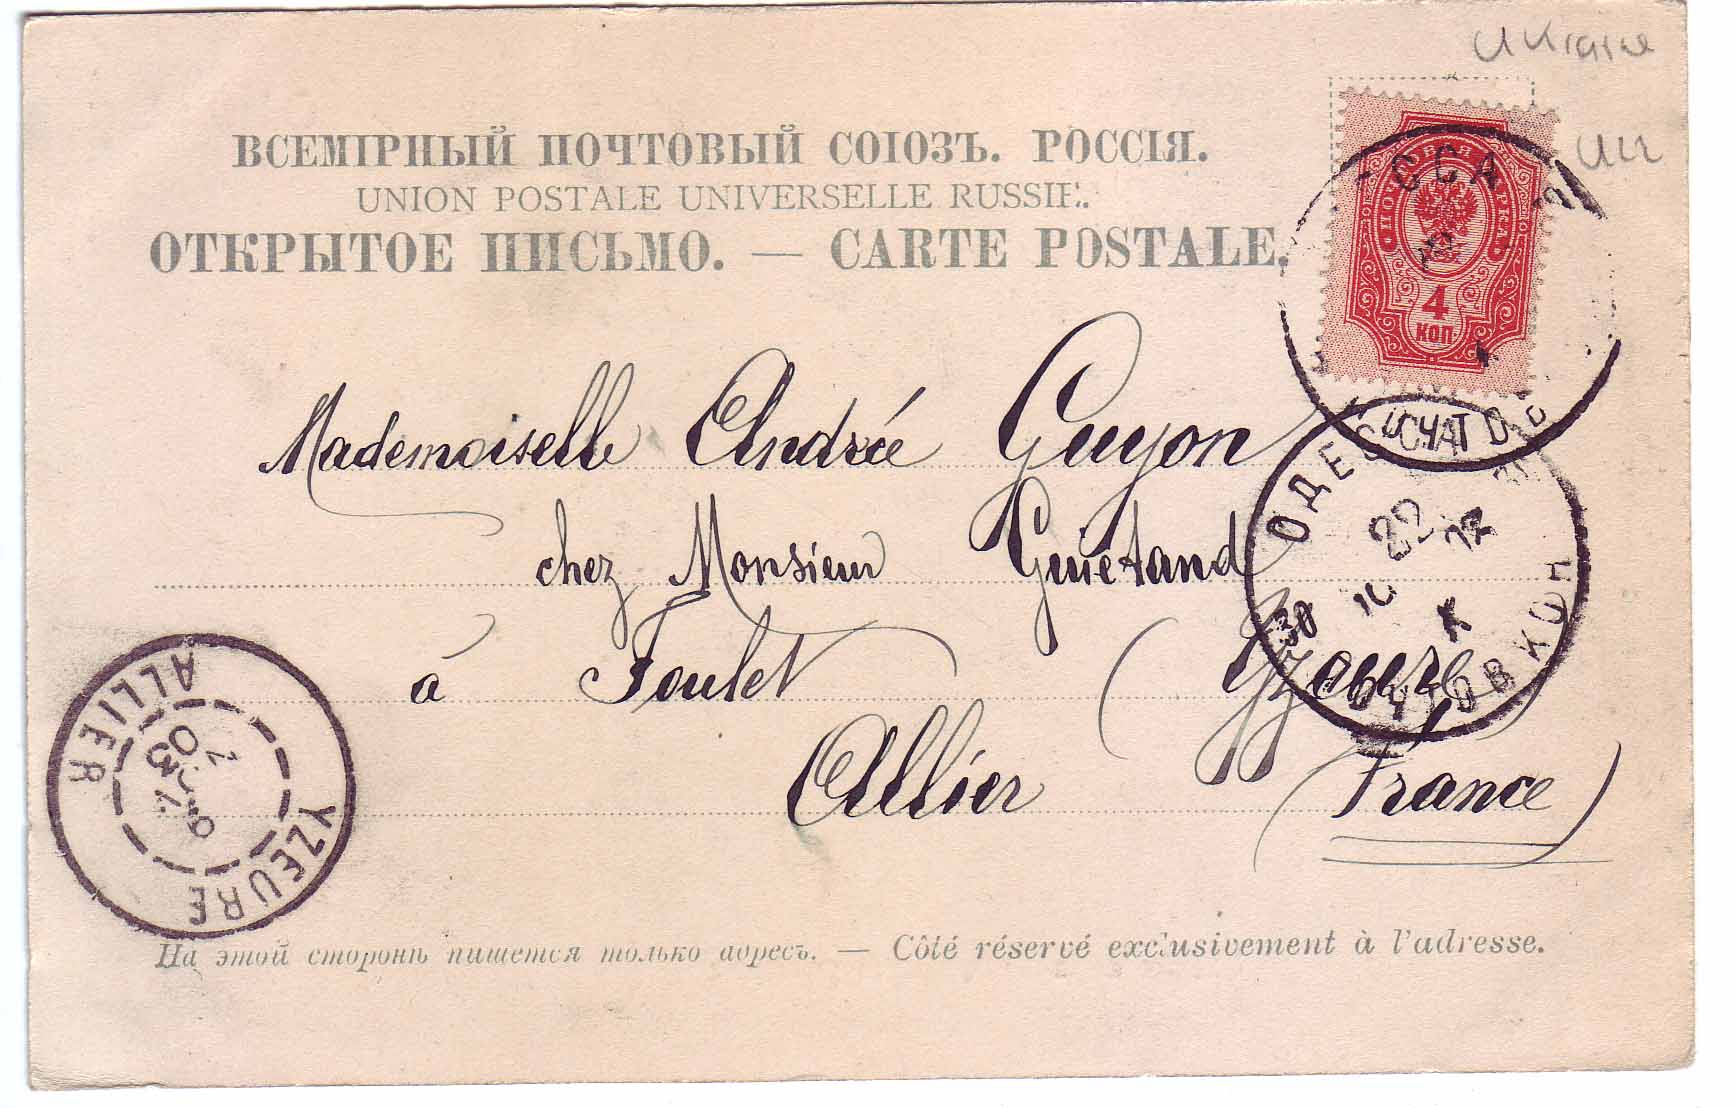 Ukraine
ВСЕМІРНЫЙ ПОЧТОВЫЙ СОЮЗЪ. РОССІЯ.
UNION POSTALE UNIVERSELLE RUSSIE.
ОТКРЫТОЕ ПИСЬМО. — CARTE POSTALE.
ПОЧТОВАЯ МАРКА
4
КОП.
ССА
Mademoiselle Andrée Guyon
chez Monsieur Guiétand
à Foulet (Yzeure
Allier France)
ОДЕС
22
X
ПОЧТОВ КОН
YZEURE
ALLIER
03
На этой сторонѣ пишется только адресъ. — Côté réservé exclusivement à l'adresse.